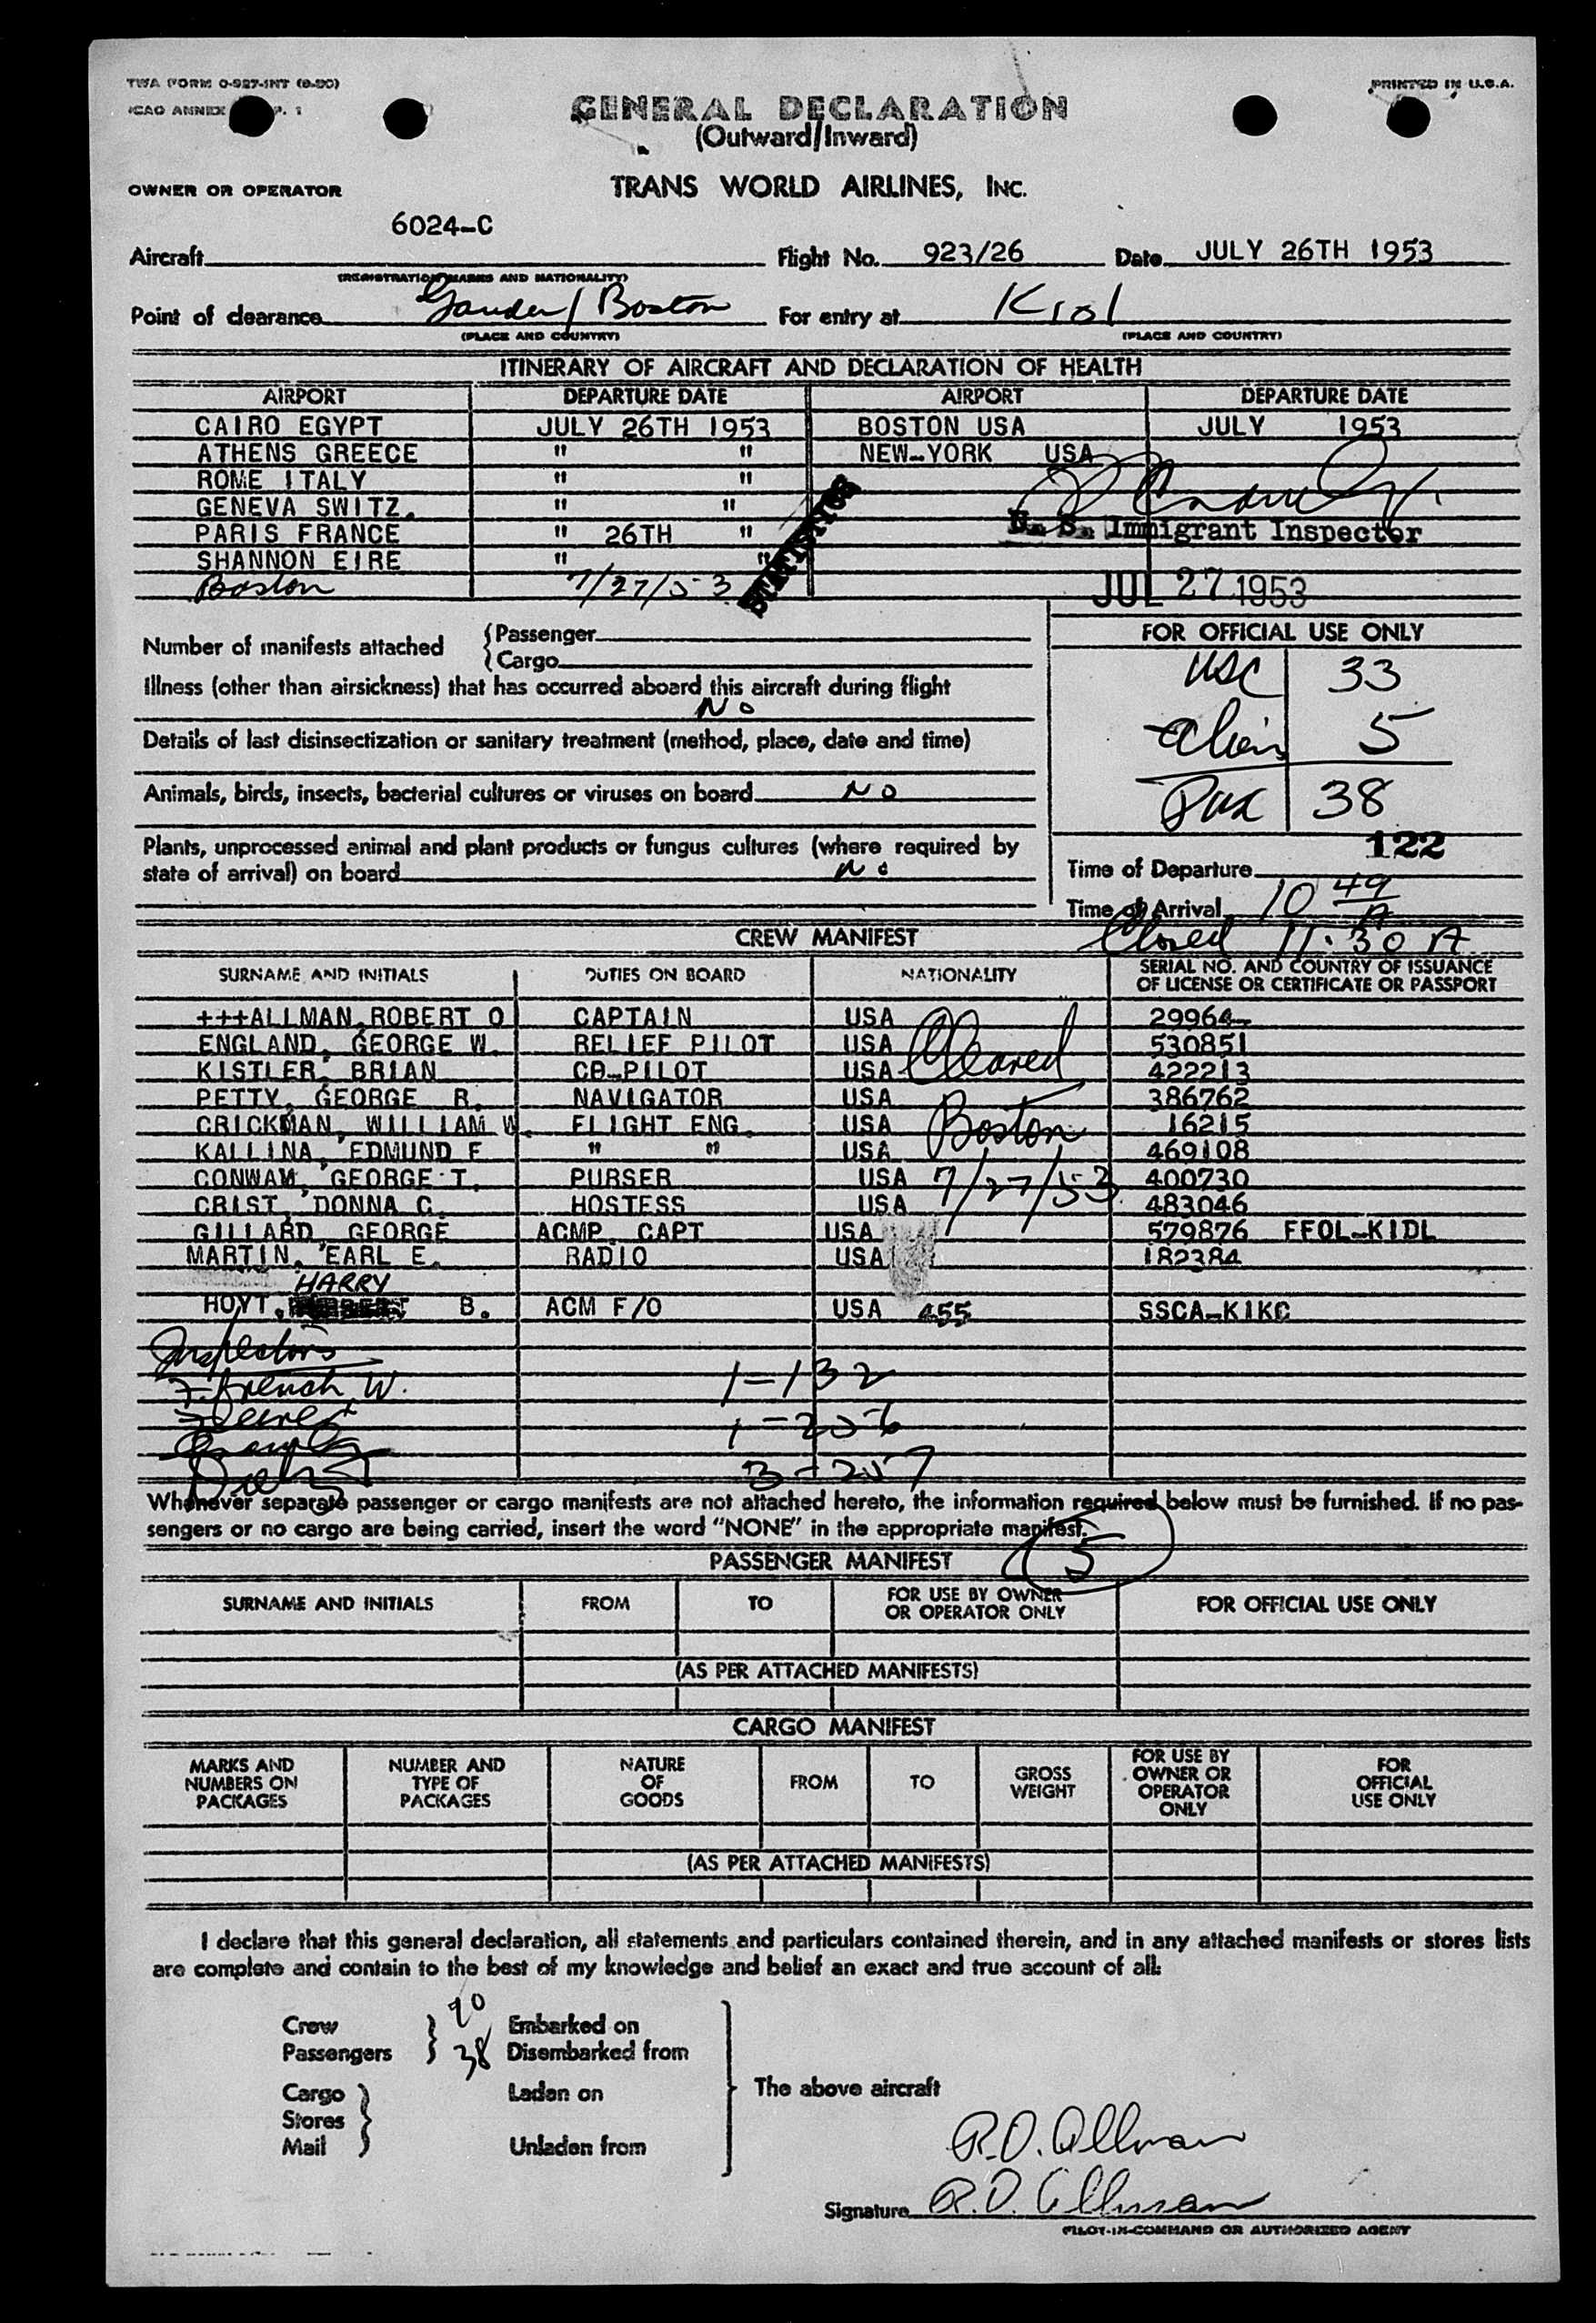 TWA FORM O-927-INT (8-50)
PRINTED IN U.S.A.
ICAO ANNEX P. 1
GENERAL DECLARATION
(Outward/Inward)
OWNER OR OPERATOR TRANS WORLD AIRLINES, INC.
6024-C
Aircraft Flight No. 923/26 Date JULY 26TH 1953
(REGISTRATION MARKS AND NATIONALITY)
Point of clearance Gander/ Boston For entry at
(PLACE AND COUNTRY) (PLACE AND COUNTRY)
ITINERARY OF AIRCRAFT AND DECLARATION OF HEALTH
AIRPORT DEPARTURE DATE AIRPORT DEPARTURE DATE
CAIRO EGYPT JULY 26TH 1953 BOSTON USA JULY 1953
ATHENS GREECE " " NEW-YORK USA
ROME ITALY " "
GENEVA SWITZ. " "
PARIS FRANCE " 26TH " U. S. Immigrant Inspector
SHANNON EIRE " "
STATISTICS
Boston 7/27/53 JUL 27 1953
Number of manifests attached {Passenger
{Cargo
FOR OFFICIAL USE ONLY
USC 33
Illness (other than airsickness) that has occurred aboard this aircraft during flight
No
Alien 5
Details of last disinsectization or sanitary treatment (method, place, date and time)
Animals, birds, insects, bacterial cultures or viruses on board No
Pax 38
122
Plants, unprocessed animal and plant products or fungus cultures (where required by
state of arrival) on board No
Time of Departure
Time of Arrival 10 49 A
Closed 11:30 A
CREW MANIFEST
SURNAME AND INITIALS DUTIES ON BOARD NATIONALITY SERIAL NO. AND COUNTRY OF ISSUANCE
OF LICENSE OR CERTIFICATE OR PASSPORT
+++ALLMAN,ROBERT O CAPTAIN USA 29964-
ENGLAND, GEORGE W. RELIEF PILOT USA 530851
KISTLER, BRIAN CO-PILOT USA Cleared 422213
PETTY, GEORGE R. NAVIGATOR USA 386762
CRICKMAN, WILLIAM W. FLIGHT ENG. USA Boston 16215
KALLINA, EDMUND F " " USA 469108
CONWAW, GEORGE T. PURSER USA 7/27/53 400730
CRIST, DONNA C. HOSTESS USA 483046
GILLARD, GEORGE ACMP. CAPT USA 579876 FFOL-KIDL
MARTIN, EARL E. RADIO USA 182384
HARRY
HOYT, B. ACM F/O USA 455 SSCA-KIKC
Inspectors
French W. 1-132
1-206
3-207
Whenever separate passenger or cargo manifests are not attached hereto, the information required below must be furnished. If no pas-
sengers or no cargo are being carried, insert the word "NONE" in the appropriate manifest.
5
PASSENGER MANIFEST
SURNAME AND INITIALS FROM TO FOR USE BY OWNER
OR OPERATOR ONLY FOR OFFICIAL USE ONLY
(AS PER ATTACHED MANIFESTS)
CARGO MANIFEST
MARKS AND
NUMBERS ON
PACKAGES
NUMBER AND
TYPE OF
PACKAGES
NATURE
OF
GOODS
FROM
TO
GROSS
WEIGHT
FOR USE BY
OWNER OR
OPERATOR
ONLY
FOR
OFFICIAL
USE ONLY
(AS PER ATTACHED MANIFESTS)
I declare that this general declaration, all statements and particulars contained therein, and in any attached manifests or stores lists
are complete and contain to the best of my knowledge and belief an exact and true account of all:
Crew Embarked on
Passengers 38 Disembarked from
Cargo Laden on The above aircraft
Stores
Mail Unladen from
R.O. Allman
Signature R.O. Allman
PILOT-IN-COMMAND OR AUTHORIZED AGENT